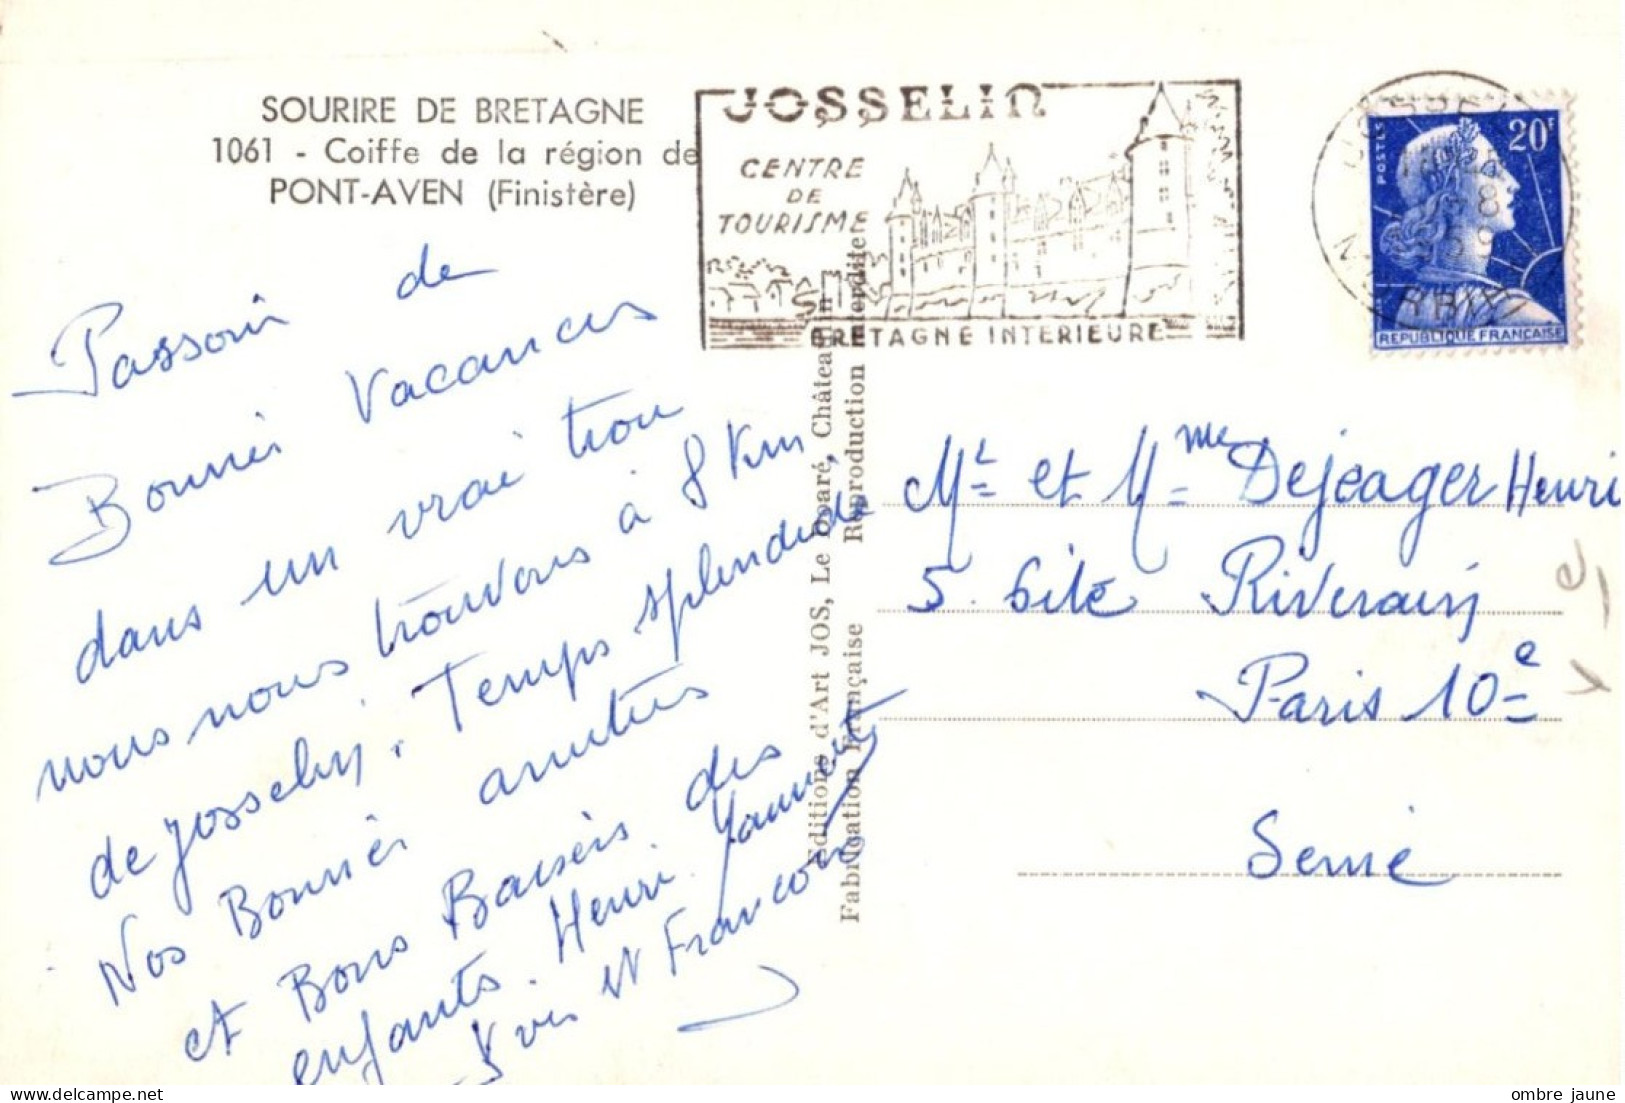 SOURIRE DE BRETAGNE
1061 - Coiffe de la région de
PONT-AVEN (Finistère)
JOSSELIN
CENTRE
DE
TOURISME
BRETAGNE INTERIEURE
POSTES
20F
REPUBLIQUE FRANÇAISE
Passons de
Bonnes Vacances
dans un vrai trou
nous nous trouvons à 8 Km
de Josselin. Temps splendide
Nos Bonnes amitiés
et Bons Baisers des
enfants. Henri
Yves et Francois
Editions d'Art JOS, Le Doaré, Châteaulin
Fabrication Française Reproduction interdite
Mr et Mme Dejeager Henri
5. Cité Riverain
Paris 10e
Seine
ombre jaune